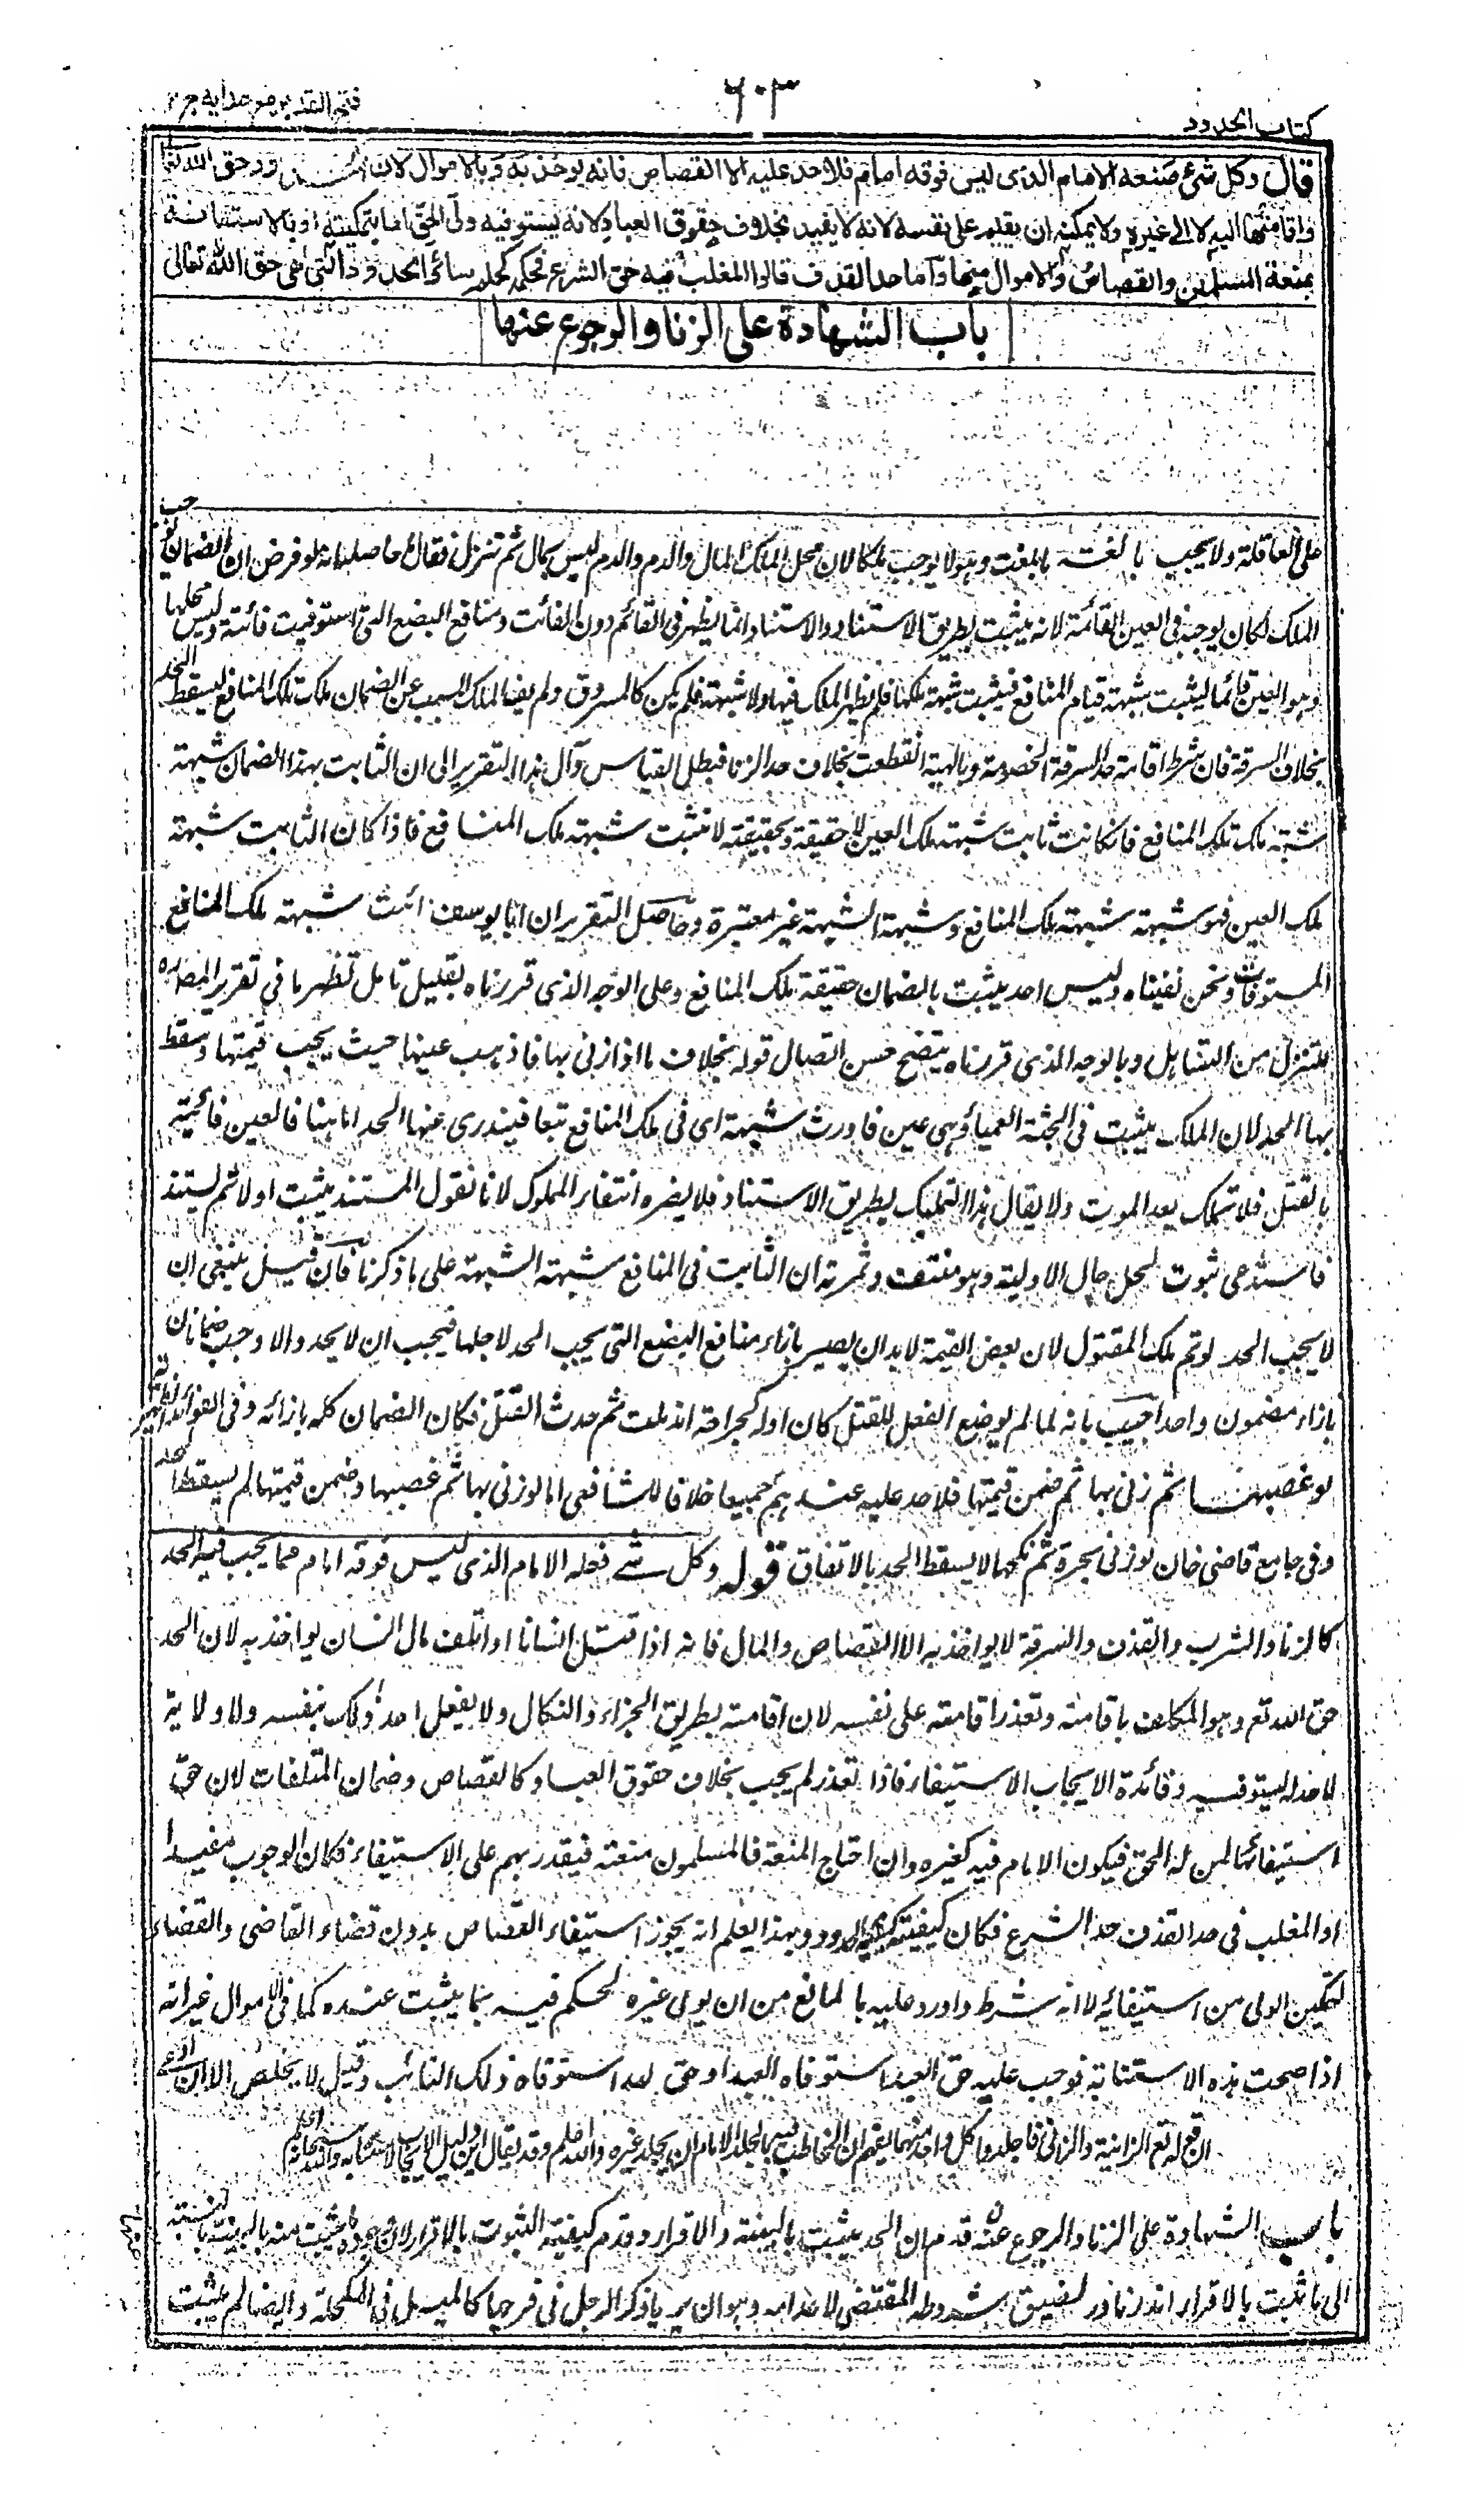 كتاب الحدود
٦٠٣
فتح القدير مع هداية ج ٢
قال وكل شئ صنعه الامام الذى ليس فوقه امام فلا حد عليه الا القصاص فانه يوخذ به و بالاموال لان الحدود حق الله تعالى
واقامتها اليه لا الى غيره ولا يمكنه ان يقيم على نفسه لانه لا يفيد بخلاف حقوق العباد لانه يستوفيه ولى الحق اما بتمكينه او بالاستعانة
بمنعة المسلمين والقصاص والاموال منها واما حد القذف قالوا المغلب فيه حق الشرع فحكمه كحكم سائر الحدود التى هى حق الله تعالى
باب الشهادة على الزنا والرجوع عنها
على العاقلة ولا يجب بالغت ما بلغت وهو لا يوجب ملكا لان محل الملك المال والدم والدم ليس بمال ثم تنزل فقال ما حاصله انه لو فرض ان الضمان يوجب
الملك لكان يوجبه فى العين القائمة لانه يثبت بطريق الاستناد والاستناد انما يظهر فى القائم دون الفائت ومنافع البضع التى استوفيت فائتة وليس محلها
وهو العين قائما ليثبت شبهة قيام المنافع فيثبت شبهة ملكها فلم يظهر الملك فيها ولا شبهته فلم يكن كالمسروق ولم يفد الملك المسبب عن الضمان ملك تلك المنافع ليسقط الحد
بخلاف السرقة فان شرط اقامة حد السرقة الخصومة وبالهبة انقطعت بخلاف حد الزنا فبطل القياس وآل هذا التقرير الى ان الثابت بهذا الضمان شبهة
شبهة ملك تلك المنافع فانه كانت ثابت شبهة ملك العين لا حقيقة وبحقيقته لا تثبت شبهة ملك المنافع فاذا كان الثابت شبهة
ملك العين فهو شبهة شبهة ملك المنافع وشبهة الشبهة غير معتبرة وحاصل التقرير ان ابا يوسف اثبت شبهة ملك المنافع
المستوفاة ونحن نفيناه وليس احد يثبت بالضمان حقيقة ملك المنافع وعلى الوجه الذى قررناه بقليل تامل تظهر ما فى تقرير
للتنزل من التساهل وبالوجه الذى قررناه يتضح حسن اتصال قوله بخلاف ما اذا زنى بها فاذهب عينها حيث يجب قيمتها وسقط
بها الحد لان الملك يثبت فى الجثة العمياء وهى عين فاورث شبهة اى فى ملك المنافع تبعا فيندرى عنها الحد اما هنا فالعين فائتة
بالقتل فلا تملك بعد الموت ولا يقال هذا التمليك بطريق الاستناد فلا يضره انتفاء المملوك لانا نقول المستند يثبت اولا ثم يستند
فاستدعى ثبوت المحل حال الاولية وهو منتف وثمرته ان الثابت فى المنافع شبهة الشبهة على ما ذكرنا فان قيل ينبغى ان
لا يجب الحد لو تم ملك المقتول لان بعض القيمة لا بد ان يصير بازاء منافع البضع التى يجب الحد لاجلها فيجب ان لا يحد والا وجب ضمانان
بازاء مضمون واحد اجيب بانه لما لم يوضع الفعل للقتل كان اوله كجراحة اندملت ثم حدث القتل فكان الضمان كله بازائه وفى الفوائد الظهيرية
لو غصبها ثم زنى بها ثم ضمن قيمتها فلا حد عليه عندهم جميعا خلافا للشافعى اما لو زنى بها ثم غصبها وضمن قيمتها لم يسقط الحد
وفى جامع قاضى خان لو زنى بحرة ثم نكحها لا يسقط الحد بالاتفاق قوله وكل شئ فعله الامام الذى ليس فوقه امام مما يجب فيه الحد
كالزنا والشرب والقذف والسرقة لا يواخذ به الا القصاص والمال فانه اذا قتل انسانا او اتلف مال انسان يواخذ به لان الحد
حق الله تع وهو المكلف باقامته وتعذر اقامته على نفسه لان اقامته بطريق الجزاء والنكال ولا يفعل احد ذلك بنفسه ولا ولاية
لاحد ليستوفيه وفائدة الايجاب الاستيفاء فاذا تعذر لم يجب بخلاف حقوق العباد كالقصاص وضمان المتلفات لان حق
استيفائها لمن له الحق فيكون الامام فيه كغيره وان احتاج المنعة فالمسلمون منعته فيقدر بهم على الاستيفاء فكان الوجوب مفيدا
او المغلب فى حد القذف حد الشرع فكان كبقية الحدود وبهذا يعلم انه يجوز استيفاء القصاص بدون قضاء القاضى والقضاء
لتمكين الولى من استيفائه لا انه شرط واورد عليه ما المانع من ان يولى غيره الحكم فيه بما يثبت عنده كما فى الاموال غير انه
اذا صحت هذه الاستنابة فوجب عليه حق العبد استوفاه العبد او حق لله استوفاه ذلك النائب وقيل لا يخلص الا ان ادعى
ان قوله تع الزانية والزانى فاجلدوا كل واحد منهما يفهم ان المخاطب فيه بالجلد الامام ان يجلد غيره والله اعلم وقد يقال
باب الشهادة على الزنا والرجوع عنه قدم ان الحد يثبت بالبينة والاقرار وقدم كيفية الثبوت بالاقرار لان وجوده ما يثبت منه بالبينة بالنسبة
الى ما ثبت بالاقرار اندر نادر لضيق شروطه المقتضى لاعدامه وهو ان يروا ذكر الرجل فى فرجها كالميل فى المكحلة وايضا لم يثبت